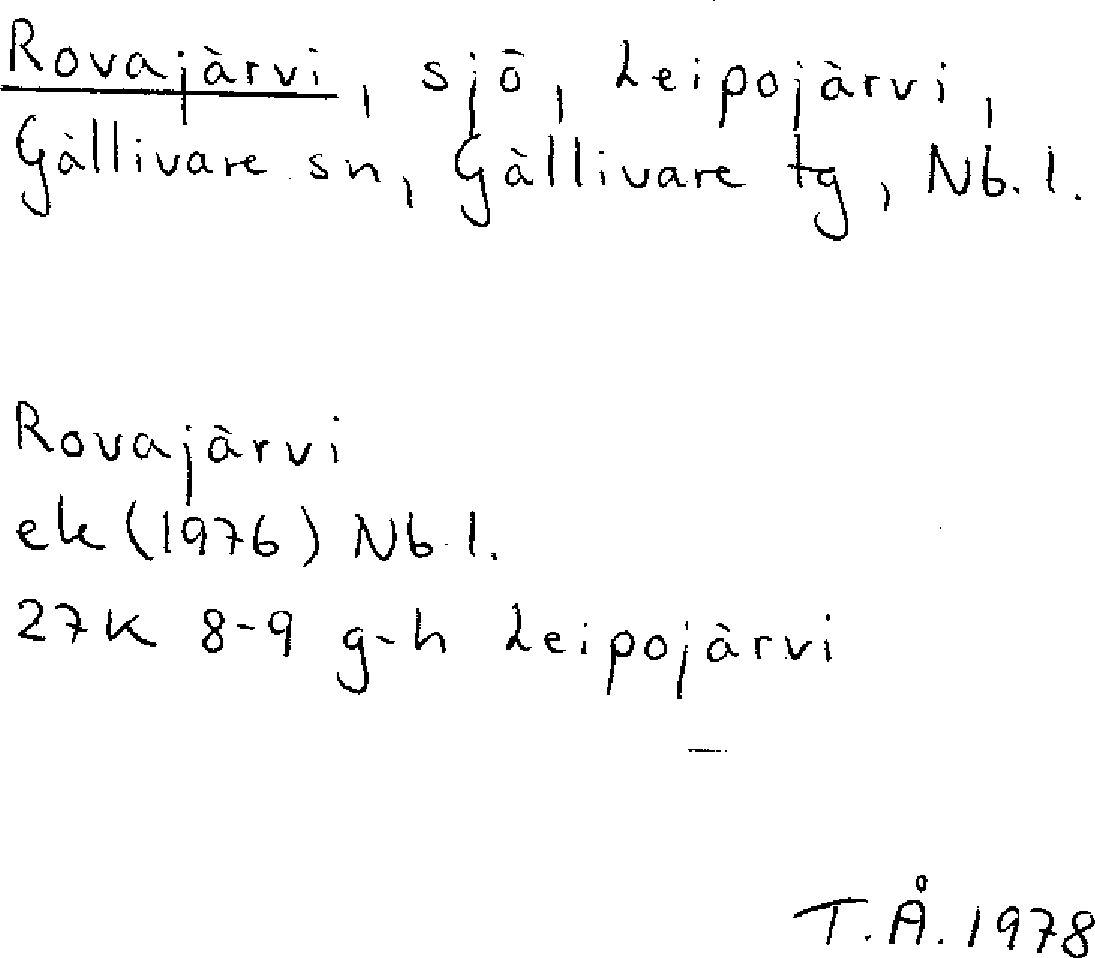 Rovajärvi, sjö, Leipojärvi,
Gällivare sn, Gällivare tg, Nb.l.
Rovajärvi
ek (1976) Nb.l.
27K 8-9 g-h Leipojärvi
T.Å. 1978